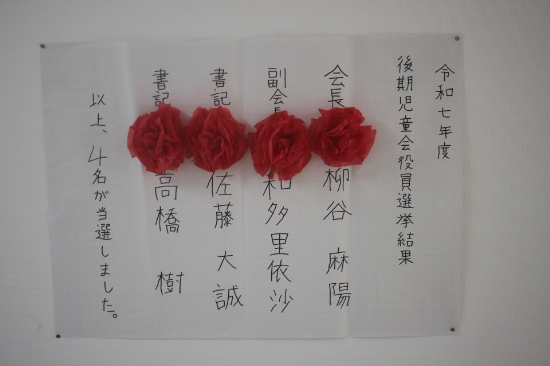 令和七年度
後期児童会役員選挙結果
会長 柳谷 麻陽
副会長 和多里依沙
書記 佐藤 大誠
書記 高橋 樹
以上、4名が当選しました。